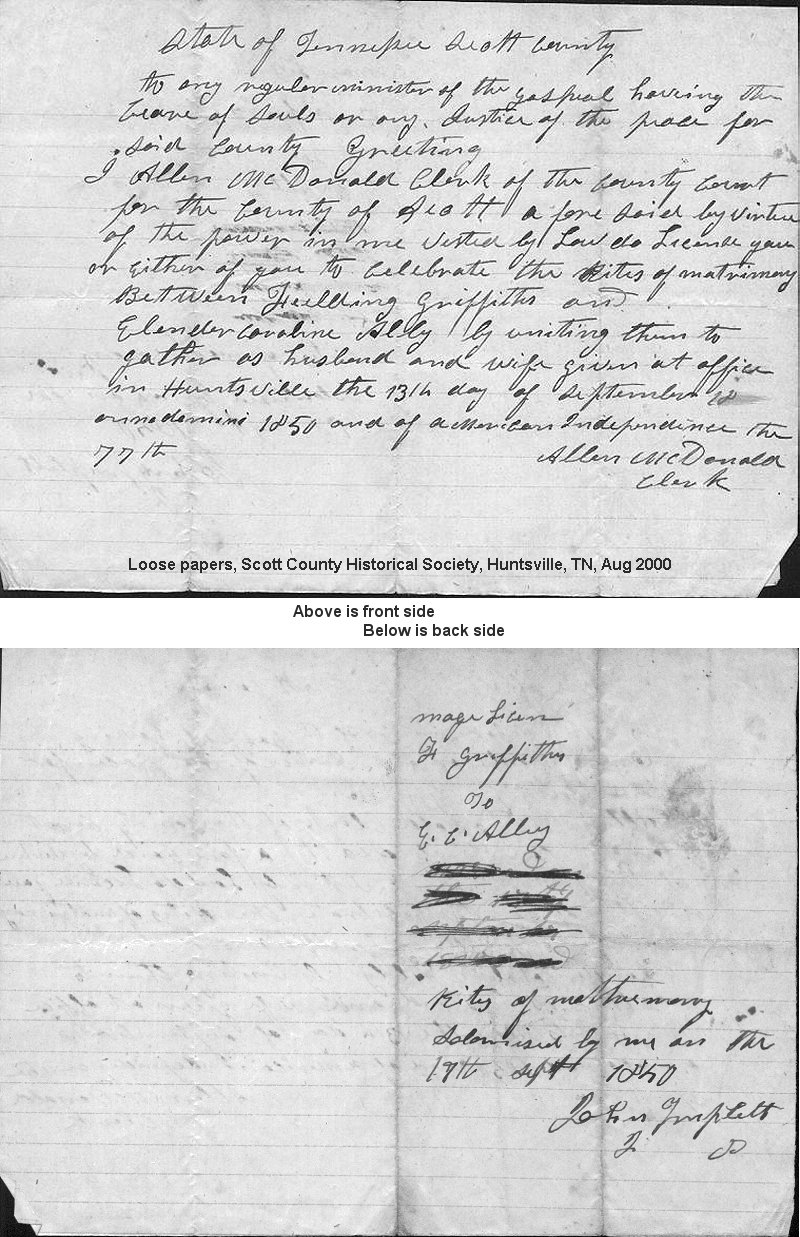 State of Tennessee Scott County
to any regular minister of the gospeal having the
Ceare of Souls or any Justice of the peace for
Said County Greeting
I Allen McDonald Clerk of the County Court
for the County of Scott a fore Said by virtue
of the power in me vested by Law do License you
or Either of you to Celebrate the Rites of matrimony
Between Feelding Griffiths and
Elender Caroline Alley by uniting them to
gather as husband and wife given at office
in Huntsville the 13th day of September 18
annodomini 1850 and of American Independence the
77th Allen McDonald
Clerk
Loose papers, Scott County Historical Society, Huntsville, TN, Aug 2000
Above is front side
Below is back side
mage Licen
F Griffiths
To
E. C. Alley
Rites of
Solomised by me on the
17th Sept 1850
John Triplett
J P